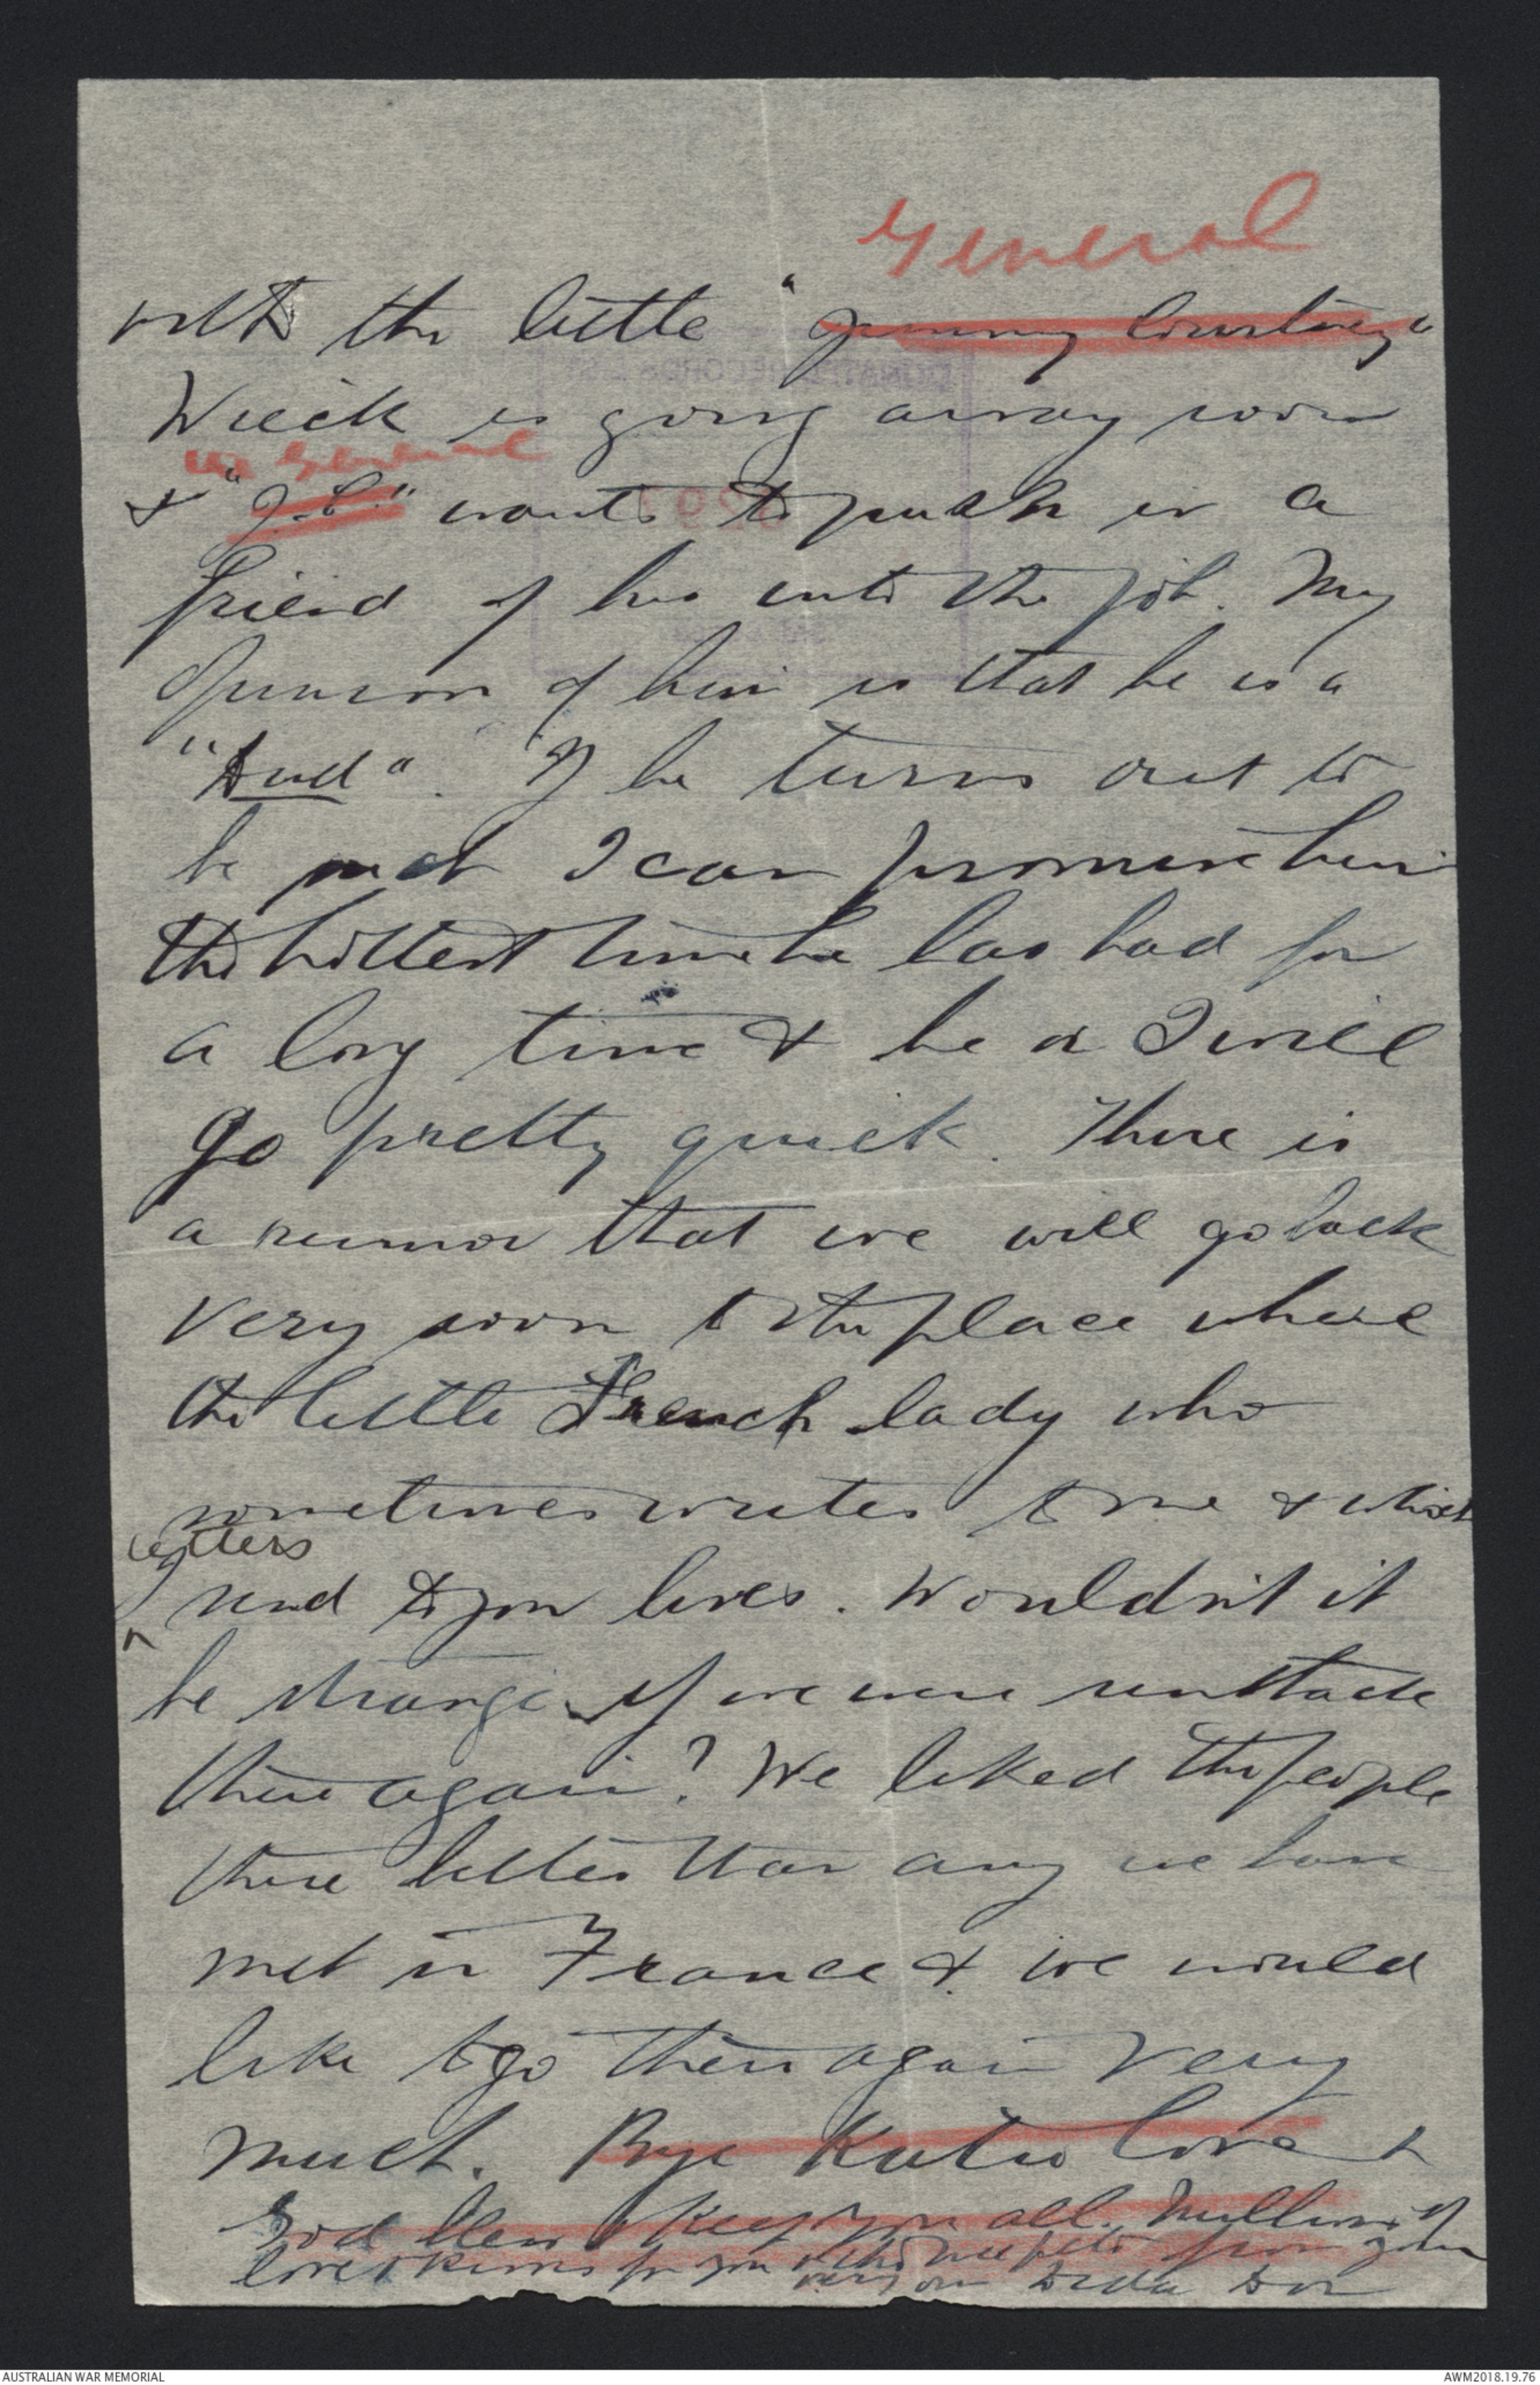 General
with the little "Jimmy Courtney"
Wieck is going away soon
the General
& "J.C." wants to push in a
friend of his into the job. My
opinion of him is that he is a
"Dud". If he turns out to
be such I can promise him
the hottest time he has had for
a long time & he or I will
go pretty quick. There is
a rumor that we will go back
very soon to the place where
the little French lady who
sometimes writes to me & which
letters
^ send to you lives. Wouldn't it
be strange if we were sent back
there again? We liked the people
there better than any we have
met in France & we would
like to go there again very
much. Bye Katie love &
God bless & keep you all. Millions of
love & kisses for you & the wee pets from your
very own Dida Don
AUSTRALIAN WAR MEMORIAL
AWM2018.19.76